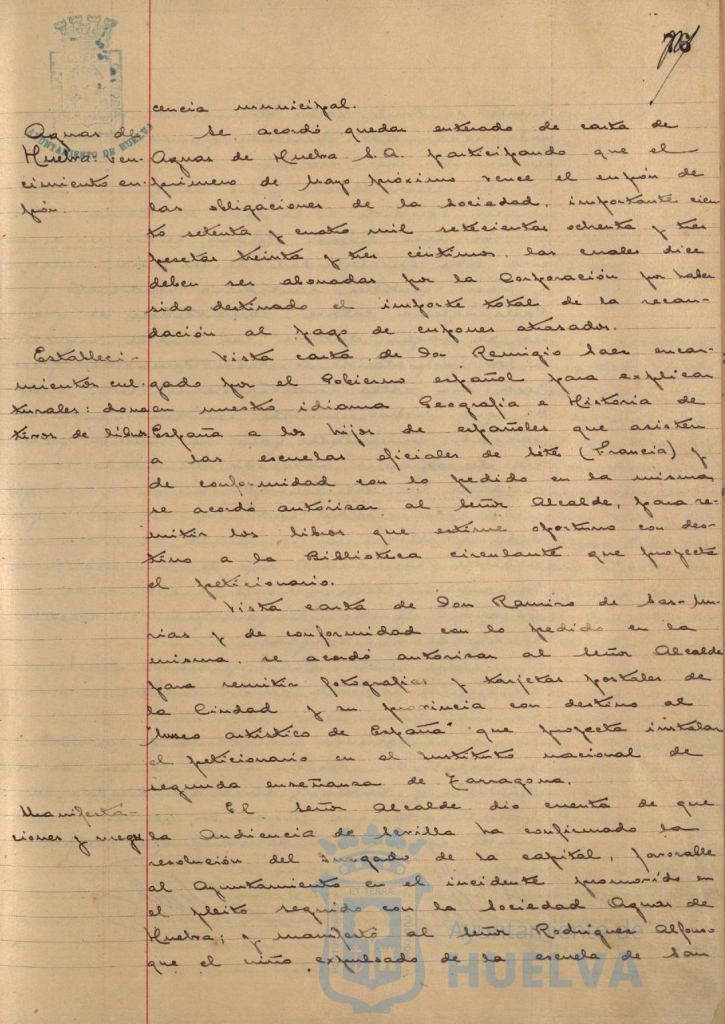 cencia municipal.
Aguas de
Huelva: Ven-
cimiento cu-
pón.
Se acordó quedar enterado de carta de
Aguas de Huelva S.A. participando que el
primero de Mayo próximo vence el cupón de
las obligaciones de la Sociedad, importante cien-
to setenta y cuatro mil setecientas ochenta y tres
pesetas treinta y tres céntimos, las cuales dice
deben ser abonadas por la Corporación por haber
sido destinado el importe total de la recau-
dación al pago de cupones atrasados.
Estableci-
mientos cul-
turales: dona
tivos de libros
Vista carta de Don Remigio Saez encar-
gado por el Gobierno español para explicar
en nuestro idioma Geografia e Historia de
España a los hijos de españoles que asisten
a las escuelas oficiales de (Francia) y
de conformidad con lo pedido en la misma,
se acordó autorizar al Señor Alcalde, para re-
mitir los libros que estime oportuno con des-
tino a la Biblioteca circulante que proyecta
el peticionario.
Vista carta de Don Ramiro de
y de conformidad con lo pedido en la
misma, se acordó autorizar al Señor Alcalde
para remitir fotografias y tarjetas postales de
la Ciudad y su provincia con destino al
"Museo artístico de España" que proyecta instalar
el peticionario en el Instituto nacional de
segunda enseñanza de Zarragona.
Manifesta-
ciones y ruegos
El Señor Alcalde dio cuenta de que
la Audiencia de Sevilla ha confirmado la
resolución del Juzgado de la capital, favorable
al Ayuntamiento en el incidente promovido en
el pleito seguido con la Sociedad Aguas de
Huelva; y manifestó al Señor Rodriguez Alfonso
que el niño expulsado de la escuela de San
AYUNTAMIENTO DE HUELVA
Ayuntamiento de
HUELVA